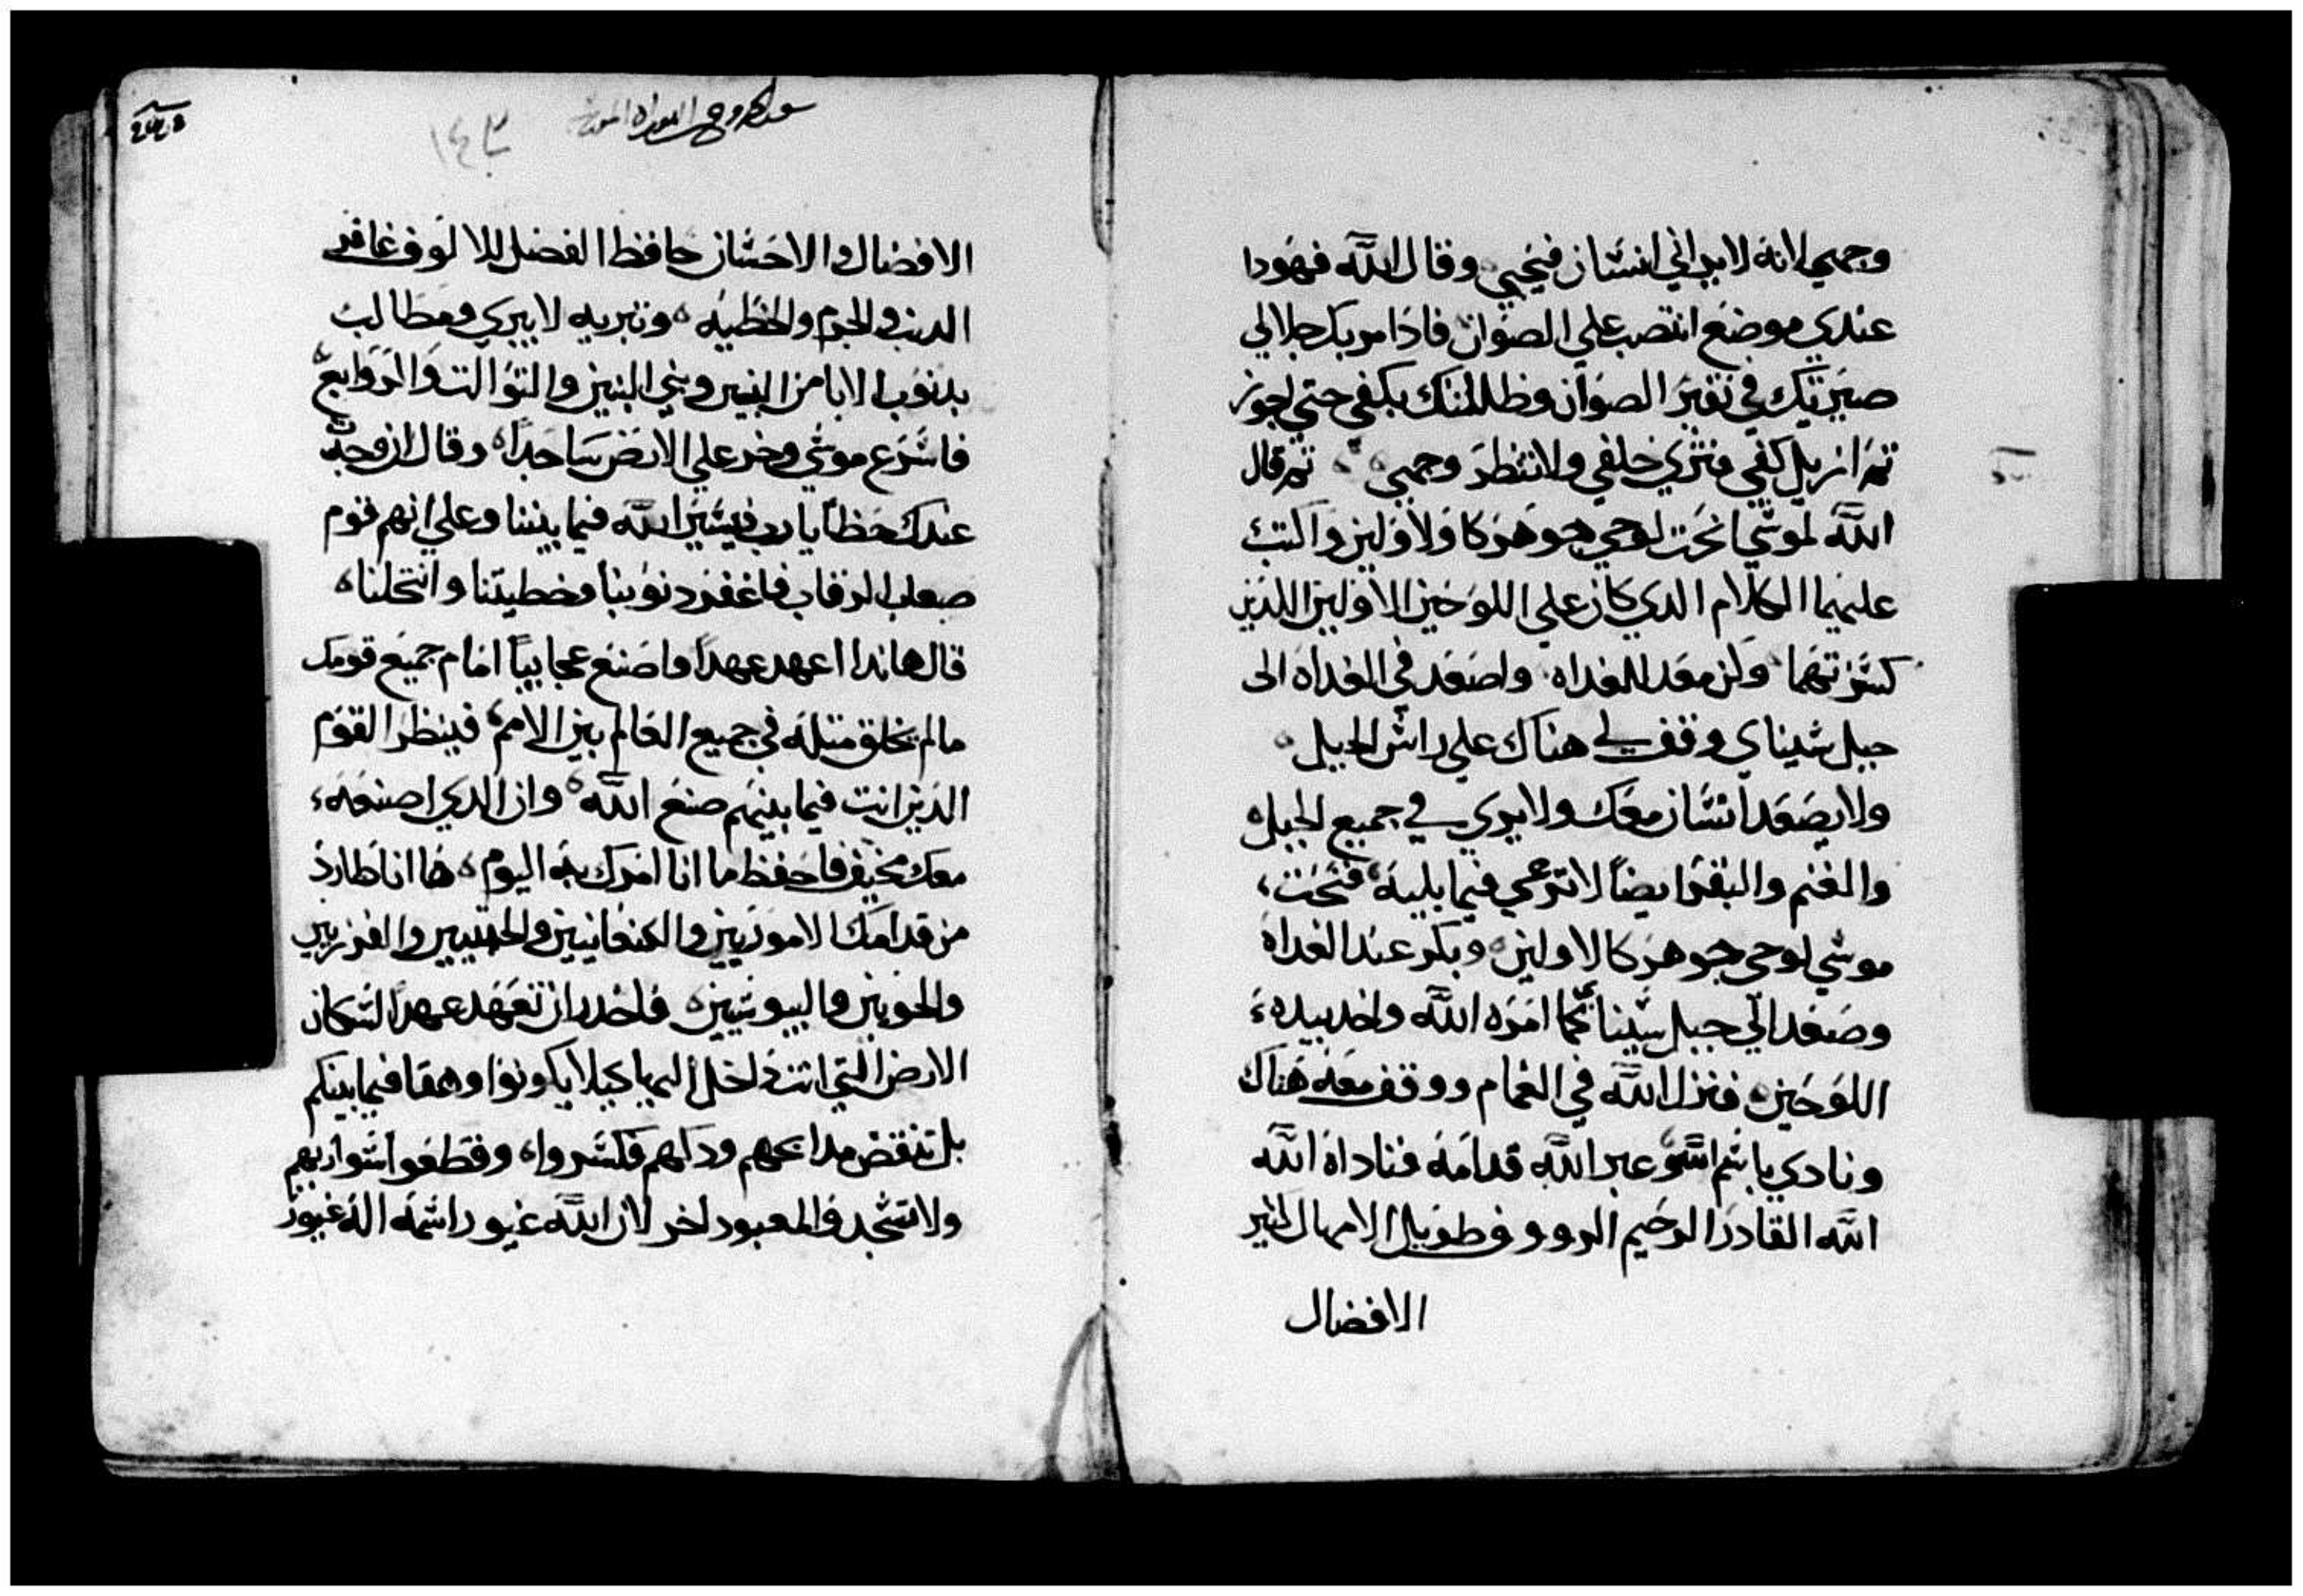 وجهي لانه لا يراني انسان فيحيي وقال الله فهودا
عندي موضع انتصب علي الصوان فاذا مر بك جلالي
صيرتك في نقير الصوان وظللتك بكفي حتي اجوز
ثم ازيل كفي فتري خلفي ولا تنظر وجهي ثم قال
الله لموسي انحت لوحي جوهر كالاولين واكتب
عليهما الكلام الدي كان علي اللوحين الاولين اللدين
كسرتهما وكن معد للغداه واصعد في الغداه الى
جبل سيناي وقف لي هناك علي راس الجبل
ولا يصعد انسان معك ولا يري في جميع الجبل
والغنم والبقر ايضاً لا ترعي فيما يليه فنحت
موسي لوحي جوهر كالاولين وبكر عند الغداه
وصعد الي جبل سينا كما امره الله واخد بيده
اللوحين فنزل الله في الغمام ووقف معه هناك
ونادي باسم الله عبر الله قدامه فناداه الله
الله القادر الرحيم الرووف طويل الامهال كثير
الافضال
١٤٣
الافضال والاحسان حافظ الفضل للالوف غافر
الدنب والجرم والخطيه وتبريه لا يبري ومطالب
بدنوب الابا من البنين وبني البنين والتوالت والروابع
فاسرع موسي وخر علي الارض ساجداً وقال ان وجدت
عندك حظاً يا رب فيسير الله فيما بيننا وعلي انهم قوم
صعاب الرقاب فاغفر دنوبنا وخطيتنا وانتحلنا
قال هاندا اعهد عهداً واصنع عجايباً امام جميع قومك
مالم يخلق متله في جميع العالم بين الامم فينظر القوم
الدين انت فيما بينهم صنع الله وان الدي اصنعه
معك مخيف فاحفظ ما انا امرك به اليوم ها انا طارد
من قدامك الاموريين والكنعانيين والحتيين والفرزيين
والحويين واليبوسيين فاحدر ان تعهد عهداً لسكان
الارض التي انت داخل اليها كيلا يكونوا وهقا فيما بينكم
بل تنقض مدابحهم ودكهم فكسروا وقطعوا سواريهم
ولا تسجدوا لمعبود اخر لان الله غيور اسمه اله غيور